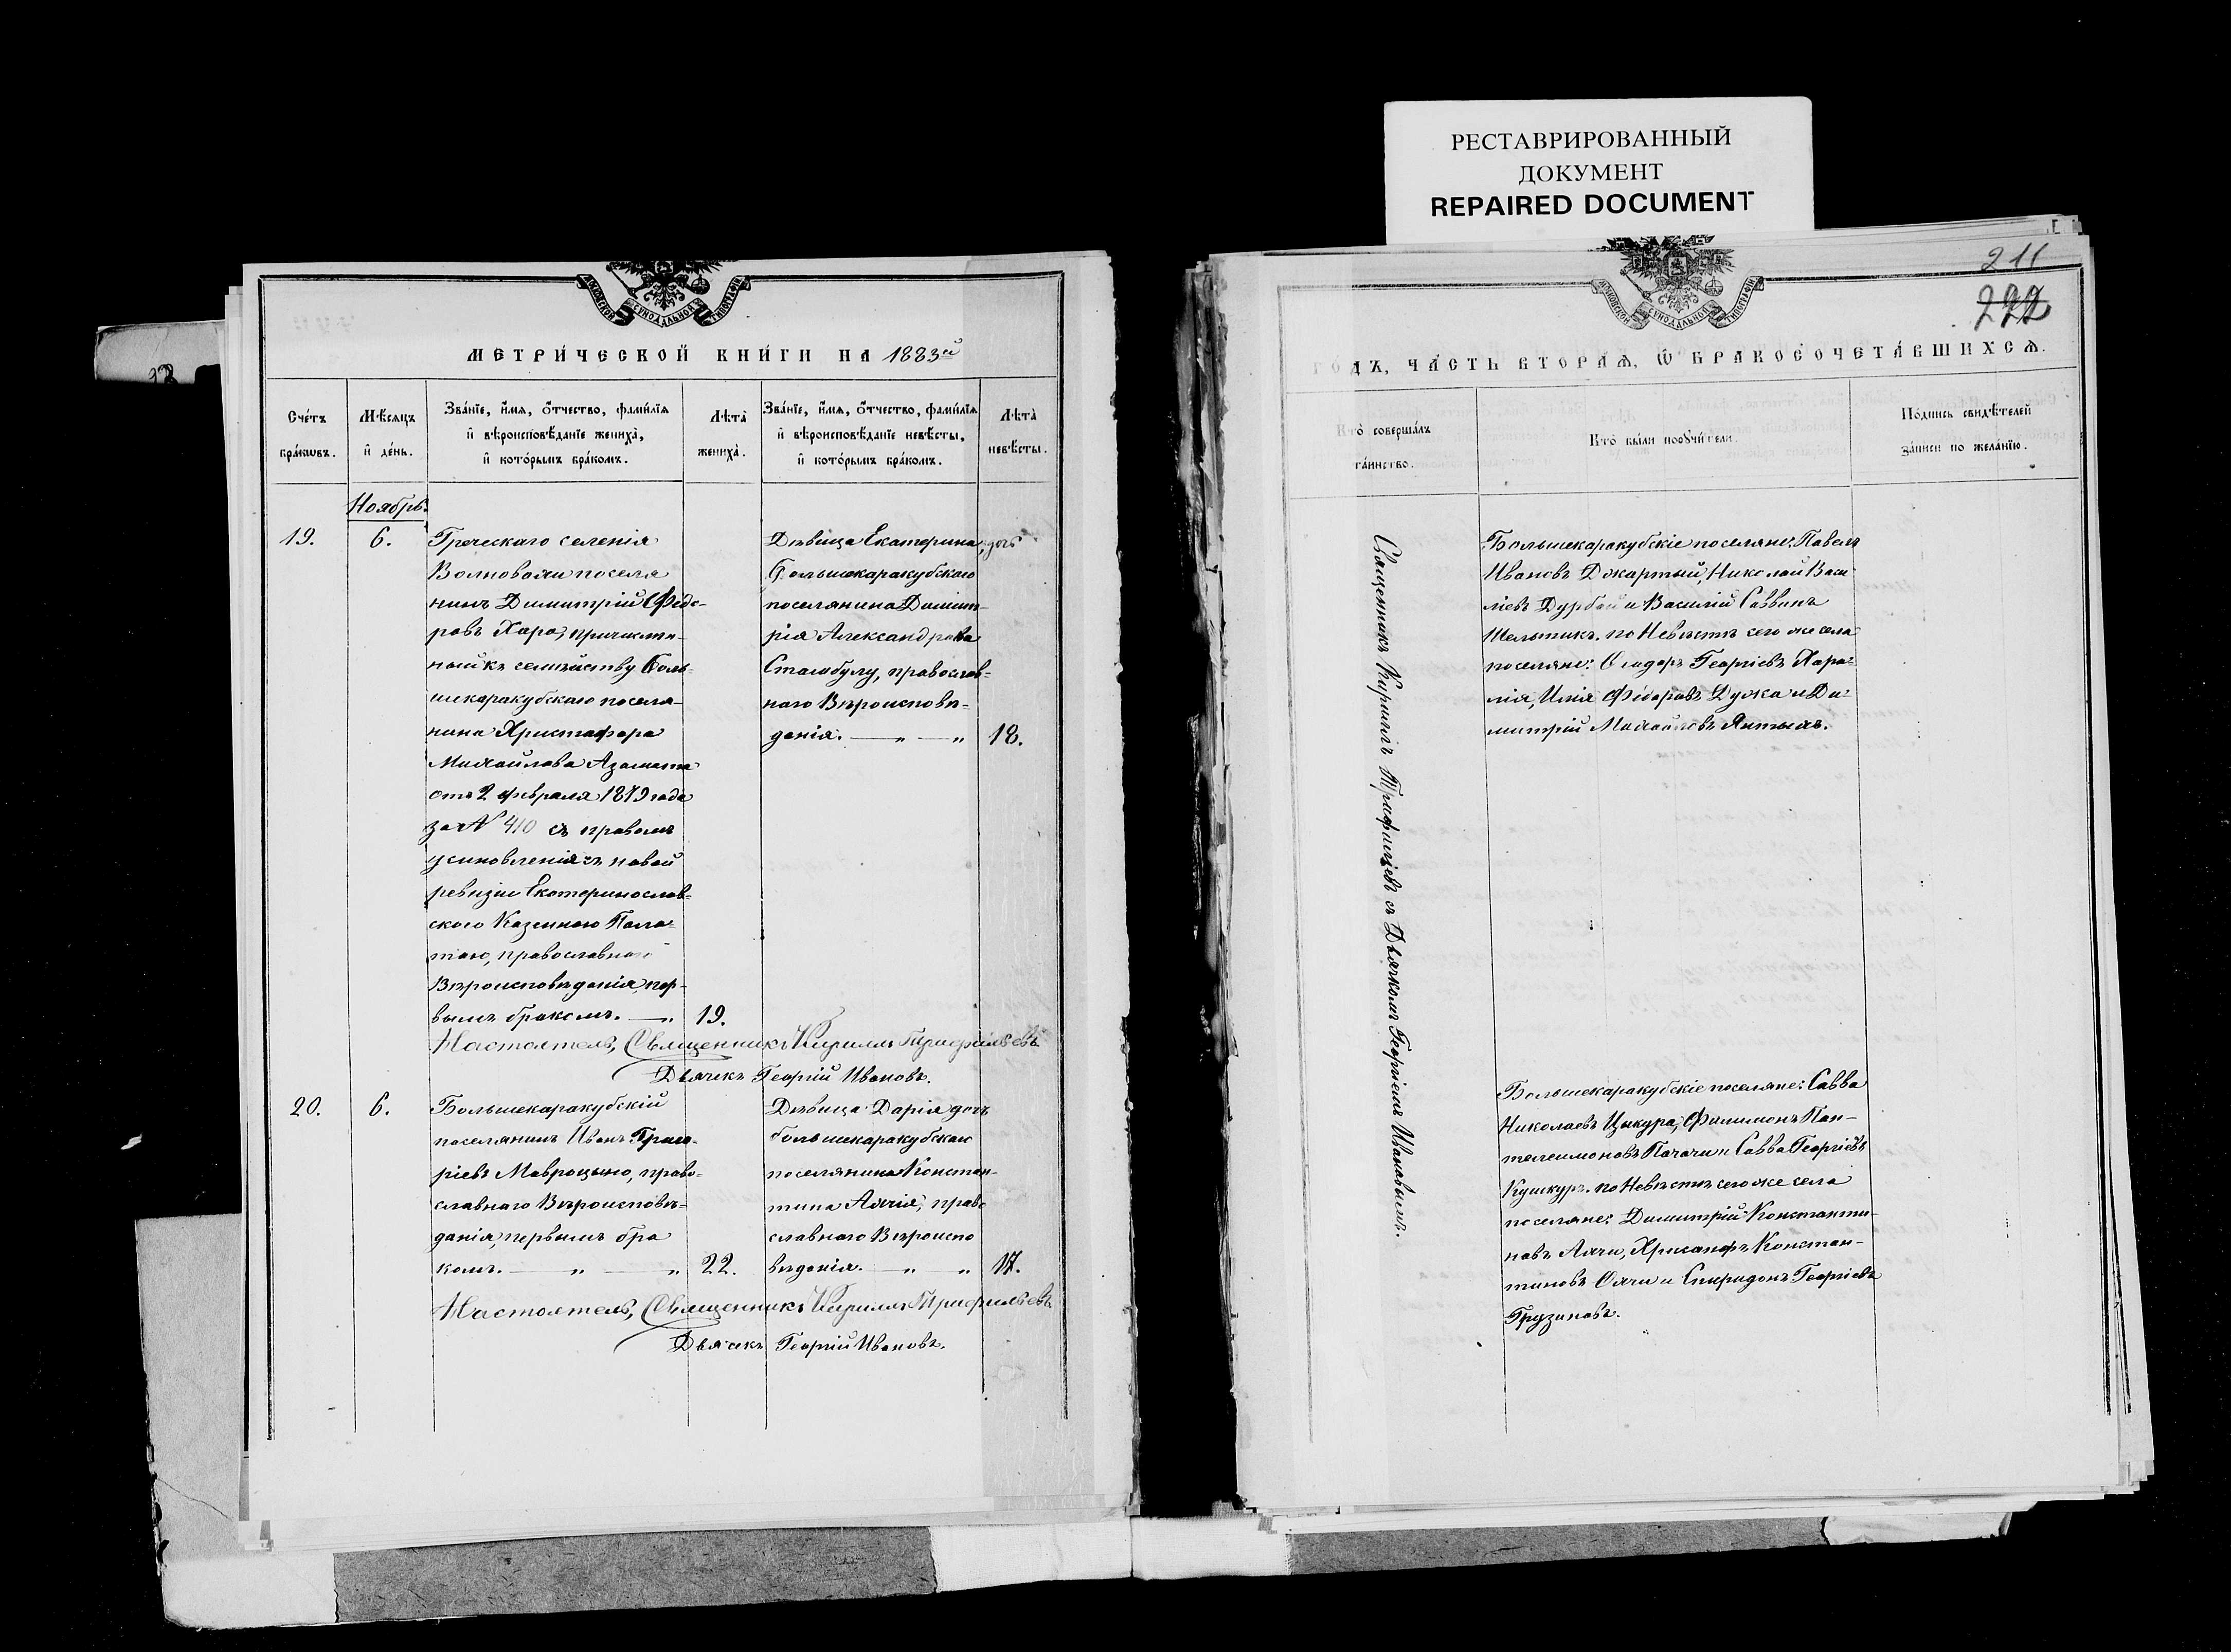 РЕСТАВРИРОВАННЫЙ
ДОКУМЕНТ
REPAIRED DOCUMENT
211
222
МЕТРИ́ЧЕСКОЙ КНИ́ГИ НА 1883й
Сче́тъ
бра́ковъ.
Мѣ́сяцъ
и҆ де́нь.
Зва́нїе, и҆́мѧ, ѻ҆́тчество, фами́лїѧ
и҆ вѣроисповѣ́данїе жениха̀,
и҆ кото́рымъ бра́комъ.
Лѣ́та̀
жениха̀.
Зва́нїе, и҆́мѧ, ѻ҆́тчество, фами́лїѧ
и҆ вѣроисповѣ́данїе невѣ́сты,
и҆ кото́рымъ бра́комъ.
Лѣ́та̀
невѣ́сты.
Ноябрь.
19.
6.
Греческаго селенія
Волновахи поселя
нинъ Димитрій Ѳедо-
ровъ Хара, причислен-
ный къ семѣйству Боль-
шекаракубскаго поселя-
нина Христофора
Михайлова Азамата
отъ 2 февраля 1879 года
за № 410 съ правомъ
усиновленія съ новой
ревизіи Екатеринослав-
скою Казенною Пала-
тою, православнаго
Вѣроисповѣданія, пер-
вымъ бракомъ. — „
19.
Дѣвица Екатерина, дочь
Большекаракубскаго
поселянина Димит-
рія Александрова
Стамбулу, православ-
наго Вѣроисповѣ-
данія. — „ — „
18.
Настоятель, Священникъ Кириллъ Трифильевъ
Дьячекъ Георгій Ивановъ.
20.
6.
Большекаракубскій
поселянинъ Иванъ Григо-
ріевъ Мавроцыно, право-
славнаго Вѣроисповѣ-
данія, первымъ бра
комъ. — „ — „
22.
Дѣвица Дарія дочь
большекаракубскаго
поселянина Констан-
тина Аячія, право
славнаго Вѣроиспо
вѣданія. — „ — „
17.
Настоятель, Священникъ Кириллъ Трифильевъ
Дьячекъ Георгій Ивановъ.
ГОДЪ, ЧА́СТЬ ВТОРА́Ѧ, Ѡ҆ БРАКОСОЧЕТА́ВШИХСѦ.
Кто̀ соверша́лъ
та́инство.
Кто̀ бы́ли порꙋчи́тели.
По́дпись свидѣ́телей
за́писи по жела́нїю.
Священникъ Кириллъ Трифиліевъ съ Дьячкомъ Георгіемъ Ивановымъ.
Большекаракубскіе поселяне: Павелъ
Ивановъ Джартый, Николай Васи-
ліевъ Дурбай и Василій Саввинъ
Шелтикъ. по Невѣстѣ сего же села
поселяне: Ѳеодоръ Георгіевъ Хара-
лія, Илія Ѳедоровъ Дужа и Ди-
митрій Михайловъ Яптыхъ.
Большекаракубскіе поселяне: Савва
Николаевъ Цыкура, Филимонъ Пан-
телеимоновъ Пачачи и Савва Георгіевъ
Кушкуръ. по Невѣстѣ сего же села
поселяне: Димитрій Константи-
новъ Аячи, Хрисанфъ Констан-
тиновъ Аячи и Спиридонъ Георгіевъ
Грузиновъ.